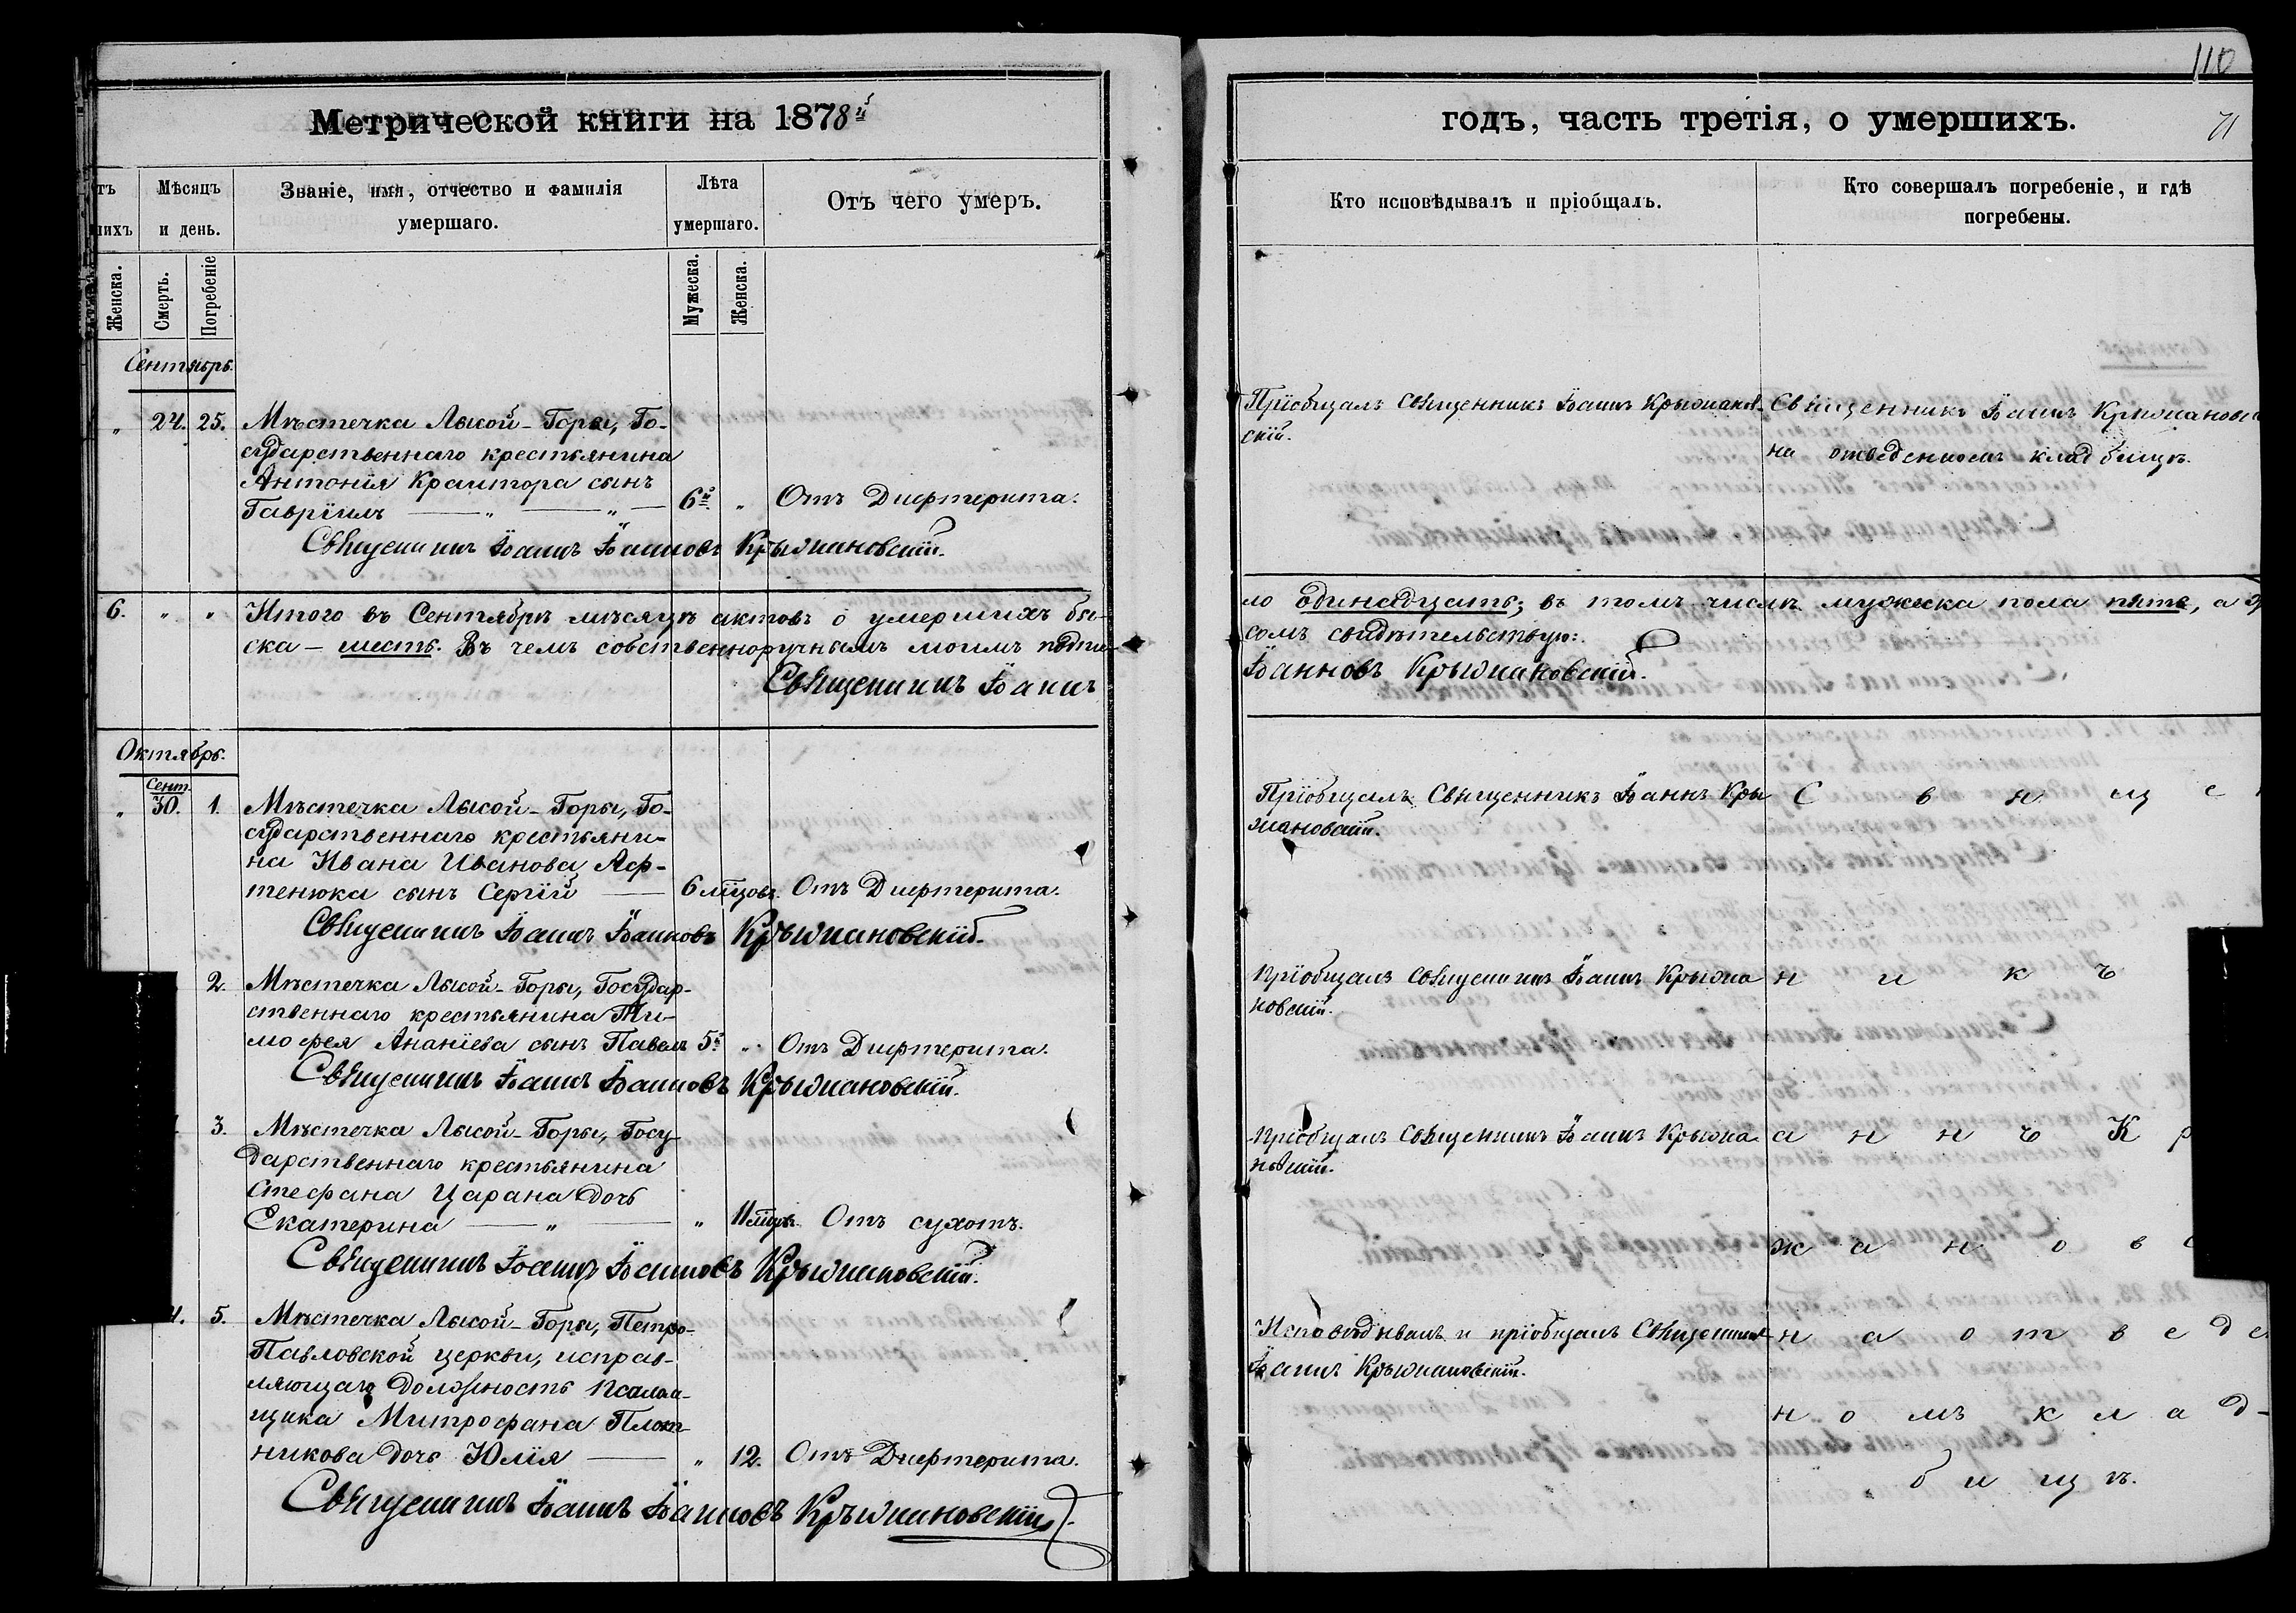 110
Метрической книги на 1878й
годъ, часть третія, о умершихъ.
71
Мѣсяцъ и день.
Званіе, имя, отчество и фамилія умершаго.
Лѣта умершаго.
Отъ чего умеръ.
Кто исповѣдывалъ и пріобщалъ.
Кто совершалъ погребеніе, и гдѣ погребены.
Женска.
Смерть.
Погребеніе
Мужеска.
Женска.
Сентябрь.
„ 24. 25. Мѣстечка Лысой-Горы, Го-
сударственнаго крестьянина
Антонія Крантора сынъ
Гавріилъ — „ — „ — 6й „ Отъ Дифтерита.
Священникъ Іоаннъ Іоанновъ Крыжановскій.
Пріобщалъ Священникъ Іоаннъ Крыжанов-
скій.
Священникъ Іоаннъ Крыжановс
на отведенномъ кладбищѣ.
6. „ „ Итого въ Сентябрѣ мѣсяцѣ актовъ о умершихъ бы-
ло одинадцать; въ томъ числѣ мужеска пола пять, а
ска — шесть. Въ чемъ собственноручнымъ моимъ подпи-
сомъ свидѣтельствую:
Священникъ Іоаннъ
Іоанновъ Крыжановскій.
Октябрь.
Сент.
„ 30. 1. Мѣстечка Лысой-Горы, Го-
сударственнаго крестьяни-
на Ивана Иванова Аф-
тенюка сынъ Сергій — 6 мцовъ. Отъ Дифтерита.
Священникъ Іоаннъ Іоанновъ Крыжановскій.
Пріобщалъ Священникъ Іоаннъ Кры
жановскій.
С в я щ е
2. Мѣстечка Лысой-Горы, Государ-
ственнаго крестьянина Ти-
мофея Ананіева сынъ Павелъ 5й „ Отъ Дифтерита.
Священникъ Іоаннъ Іоанновъ Крыжановскій.
Пріобщалъ Священникъ Іоаннъ Крыжа
новскій.
н и к ъ
3. Мѣстечка Лысой-Горы, Госу
дарственнаго крестьянина
Стефана Царана дочь
Екатерина — „ — „ 11 мцовъ. Отъ сухотъ.
Священникъ Іоаннъ Іоанновъ Крыжановскій.
Пріобщалъ Священникъ Іоаннъ Крыжа
новскій.
а н н ъ К р
ж а н о в с
4. 5. Мѣстечка Лысой-Горы, Петро-
Павловской церкви, исправ-
ляющаго должность псалом-
щика Митрофана Плот-
никова дочь Юлія — „ 12. Отъ Дифтерита.
Священникъ Іоаннъ Іоанновъ Крыжановскій.
Исповѣдывалъ и пріобщалъ Священникъ
Іоаннъ Крыжановскій.
н а о т в е д е
н о мъ к л а д-
б и щ ѣ.